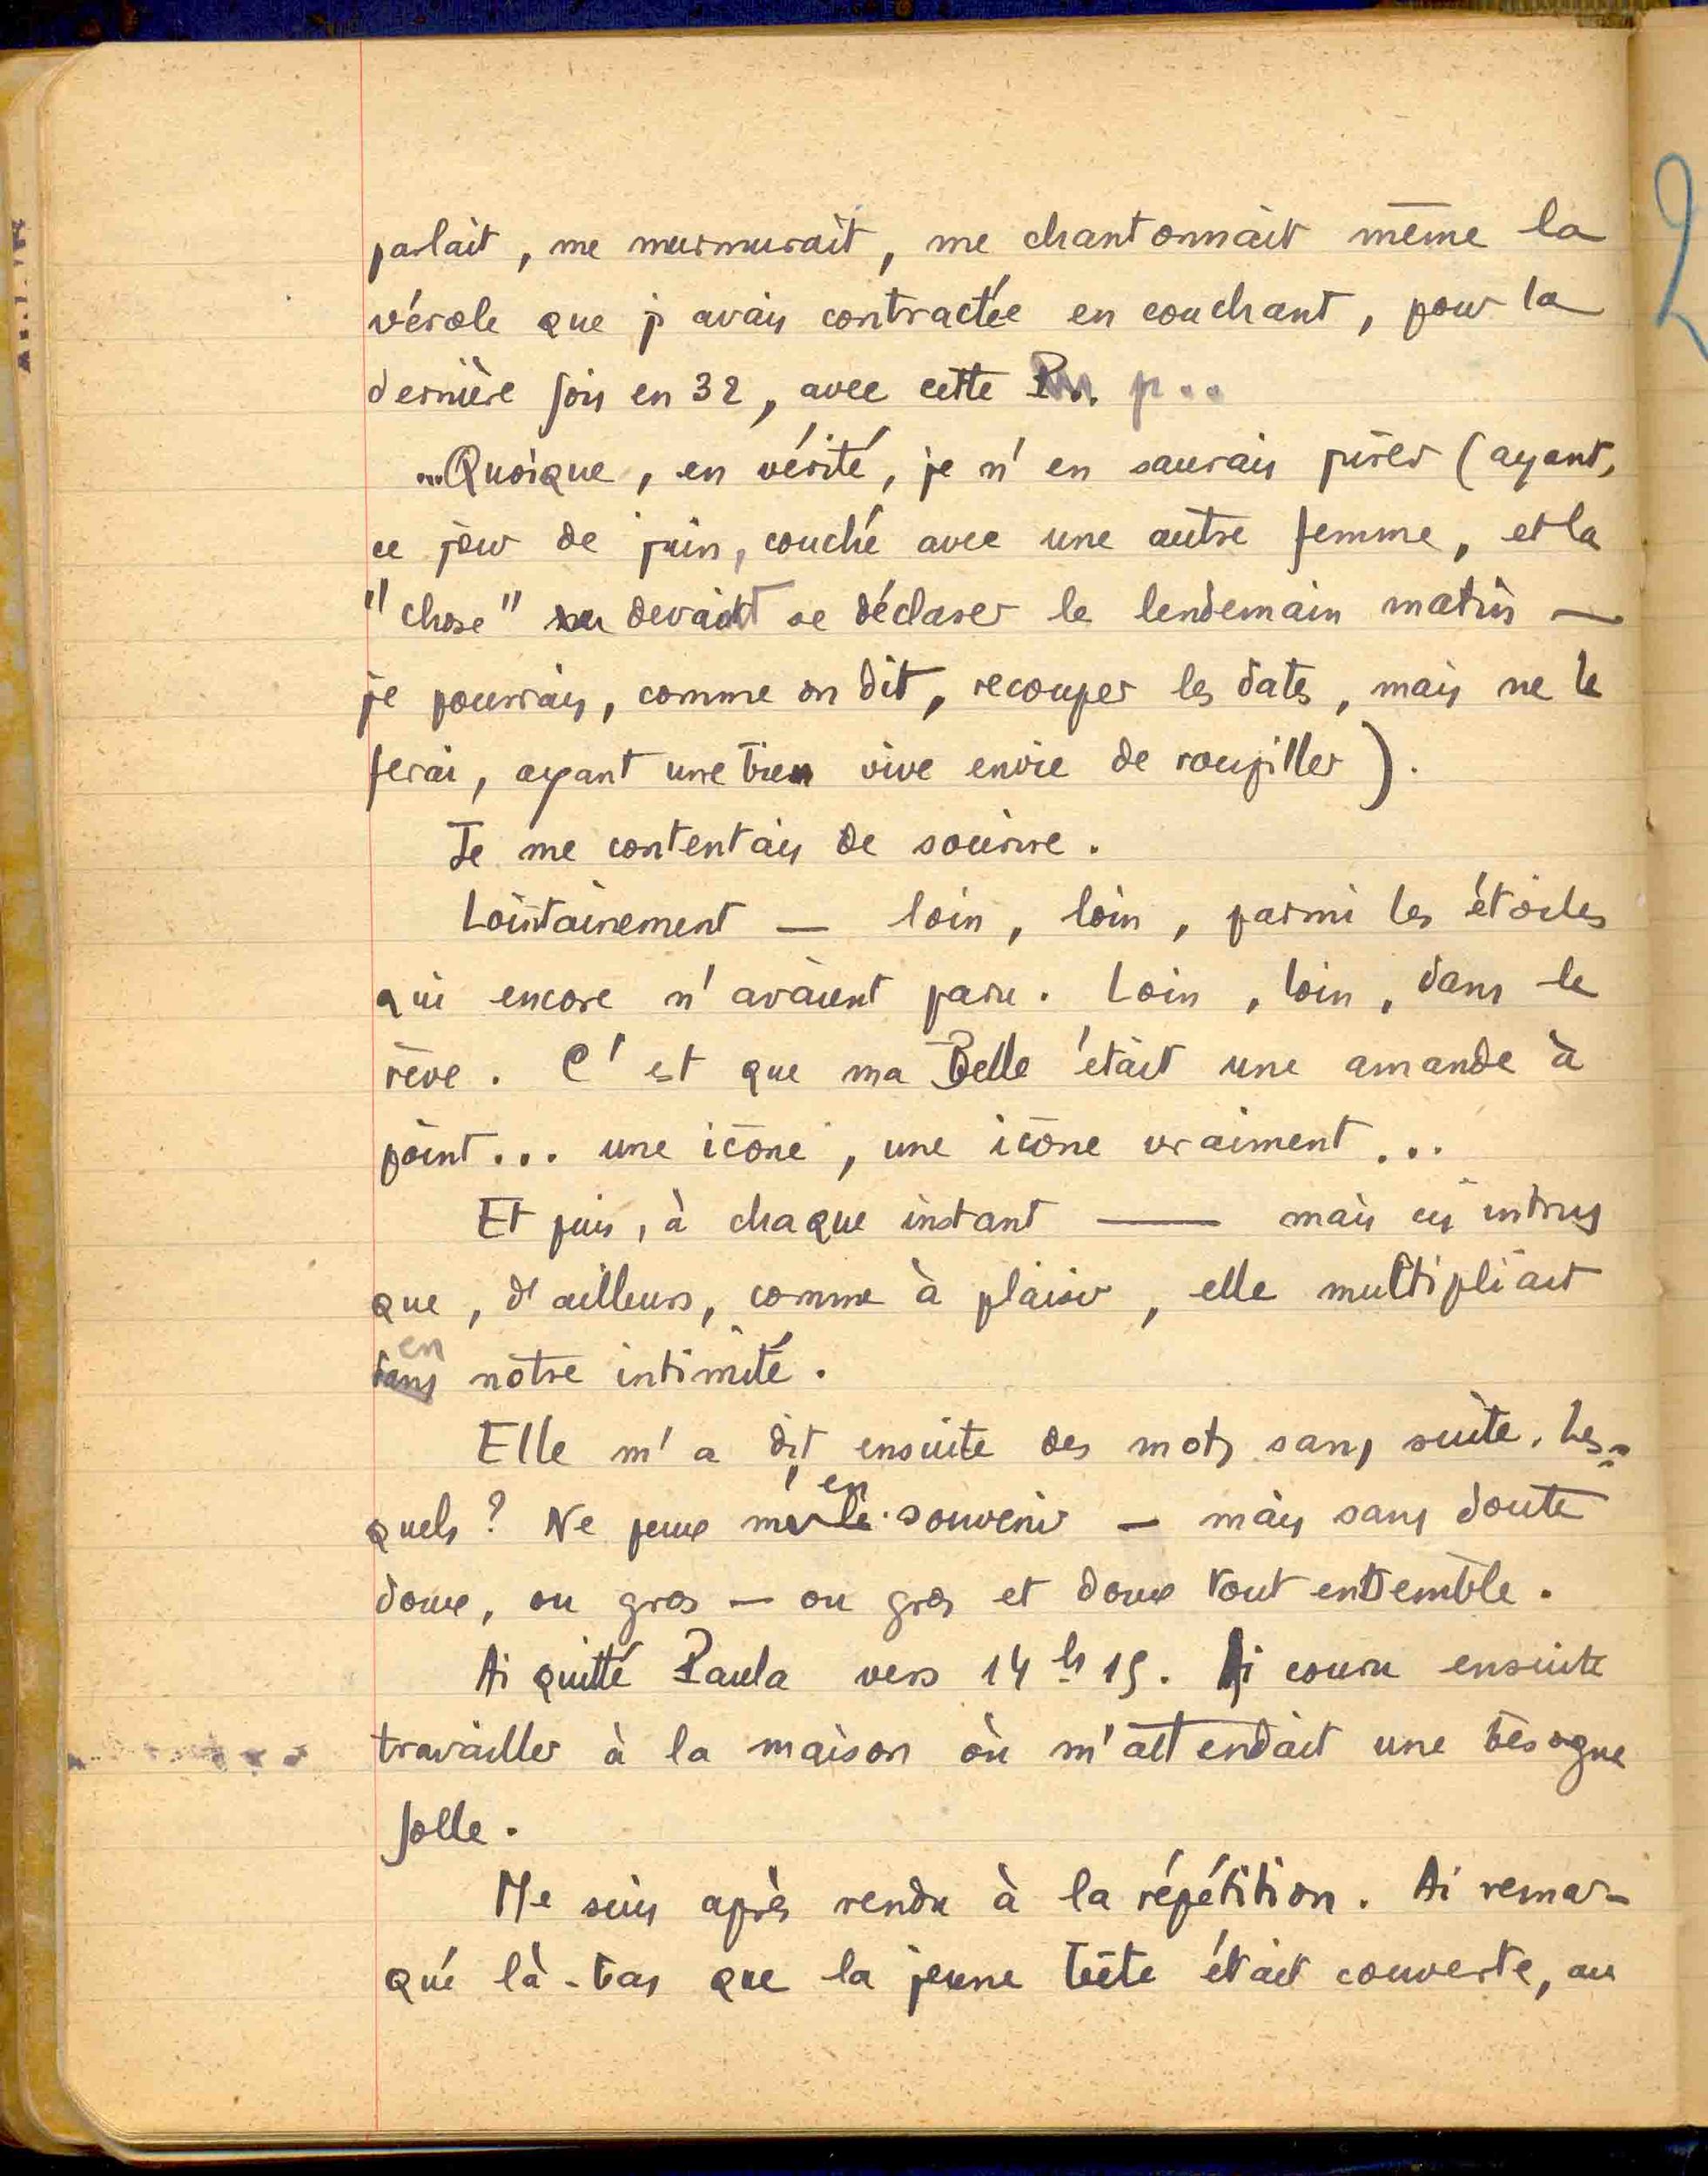 parlait, me murmurait, me chantonnait même la
vérole que j'avais contractée en couchant, pour la
dernière fois en 32, avec cette p..
...Quoique, en vérité, je n'en saurais jurer (ayant,
ce jour de juin, couché avec une autre femme, et la
"chose" devait se déclarer le lendemain matin —
je pourrais, comme on dit, recouper les dates, mais ne le
ferai, ayant une bien vive envie de roupiller).
Je me contentais de sourire.
Lointainement — loin, loin, parmi les étoiles
qui encore n'avaient paru. Loin, loin, dans le
rêve. C'est que ma Belle était une amande à
point... une icône, une icône vraiment...
Et puis, à chaque instant — mais ces intrus
que, d'ailleurs, comme à plaisir, elle multipliait
en
dans notre intimité.
Elle m'a dit ensuite des mots sans suite. Les-
quels ? Ne peux m'en souvenir — mais sans doute
doux, ou gros — ou gros et doux tout ensemble.
Ai quitté Paula vers 14 h 15. Ai couru ensuite
travailler à la maison où m'attendait une besogne
folle.
Me suis après rendu à la répétition. Ai remar-
qué là-bas que la jeune tête était couverte, au
2